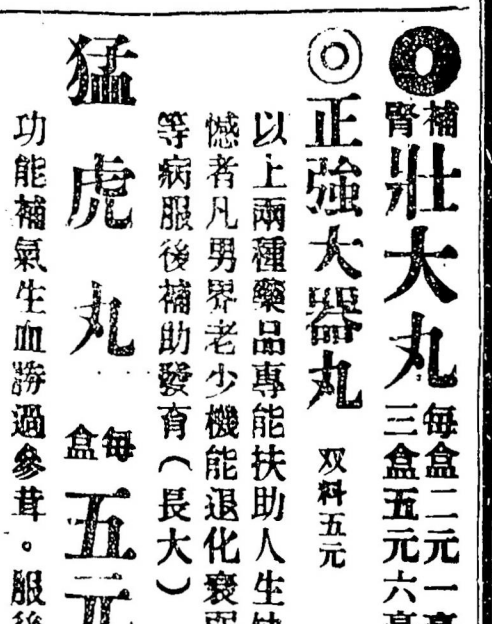 補腎壯大丸
每盒二元一毫
三盒五元六毫
正強大器丸 双料五元
以上兩種藥品專能扶助人生缺
憾者凡男界老少機能退化衰弱
等病服後補助發育(長大)
猛虎丸 每盒五元
功能補氣生血勝過參茸。服後